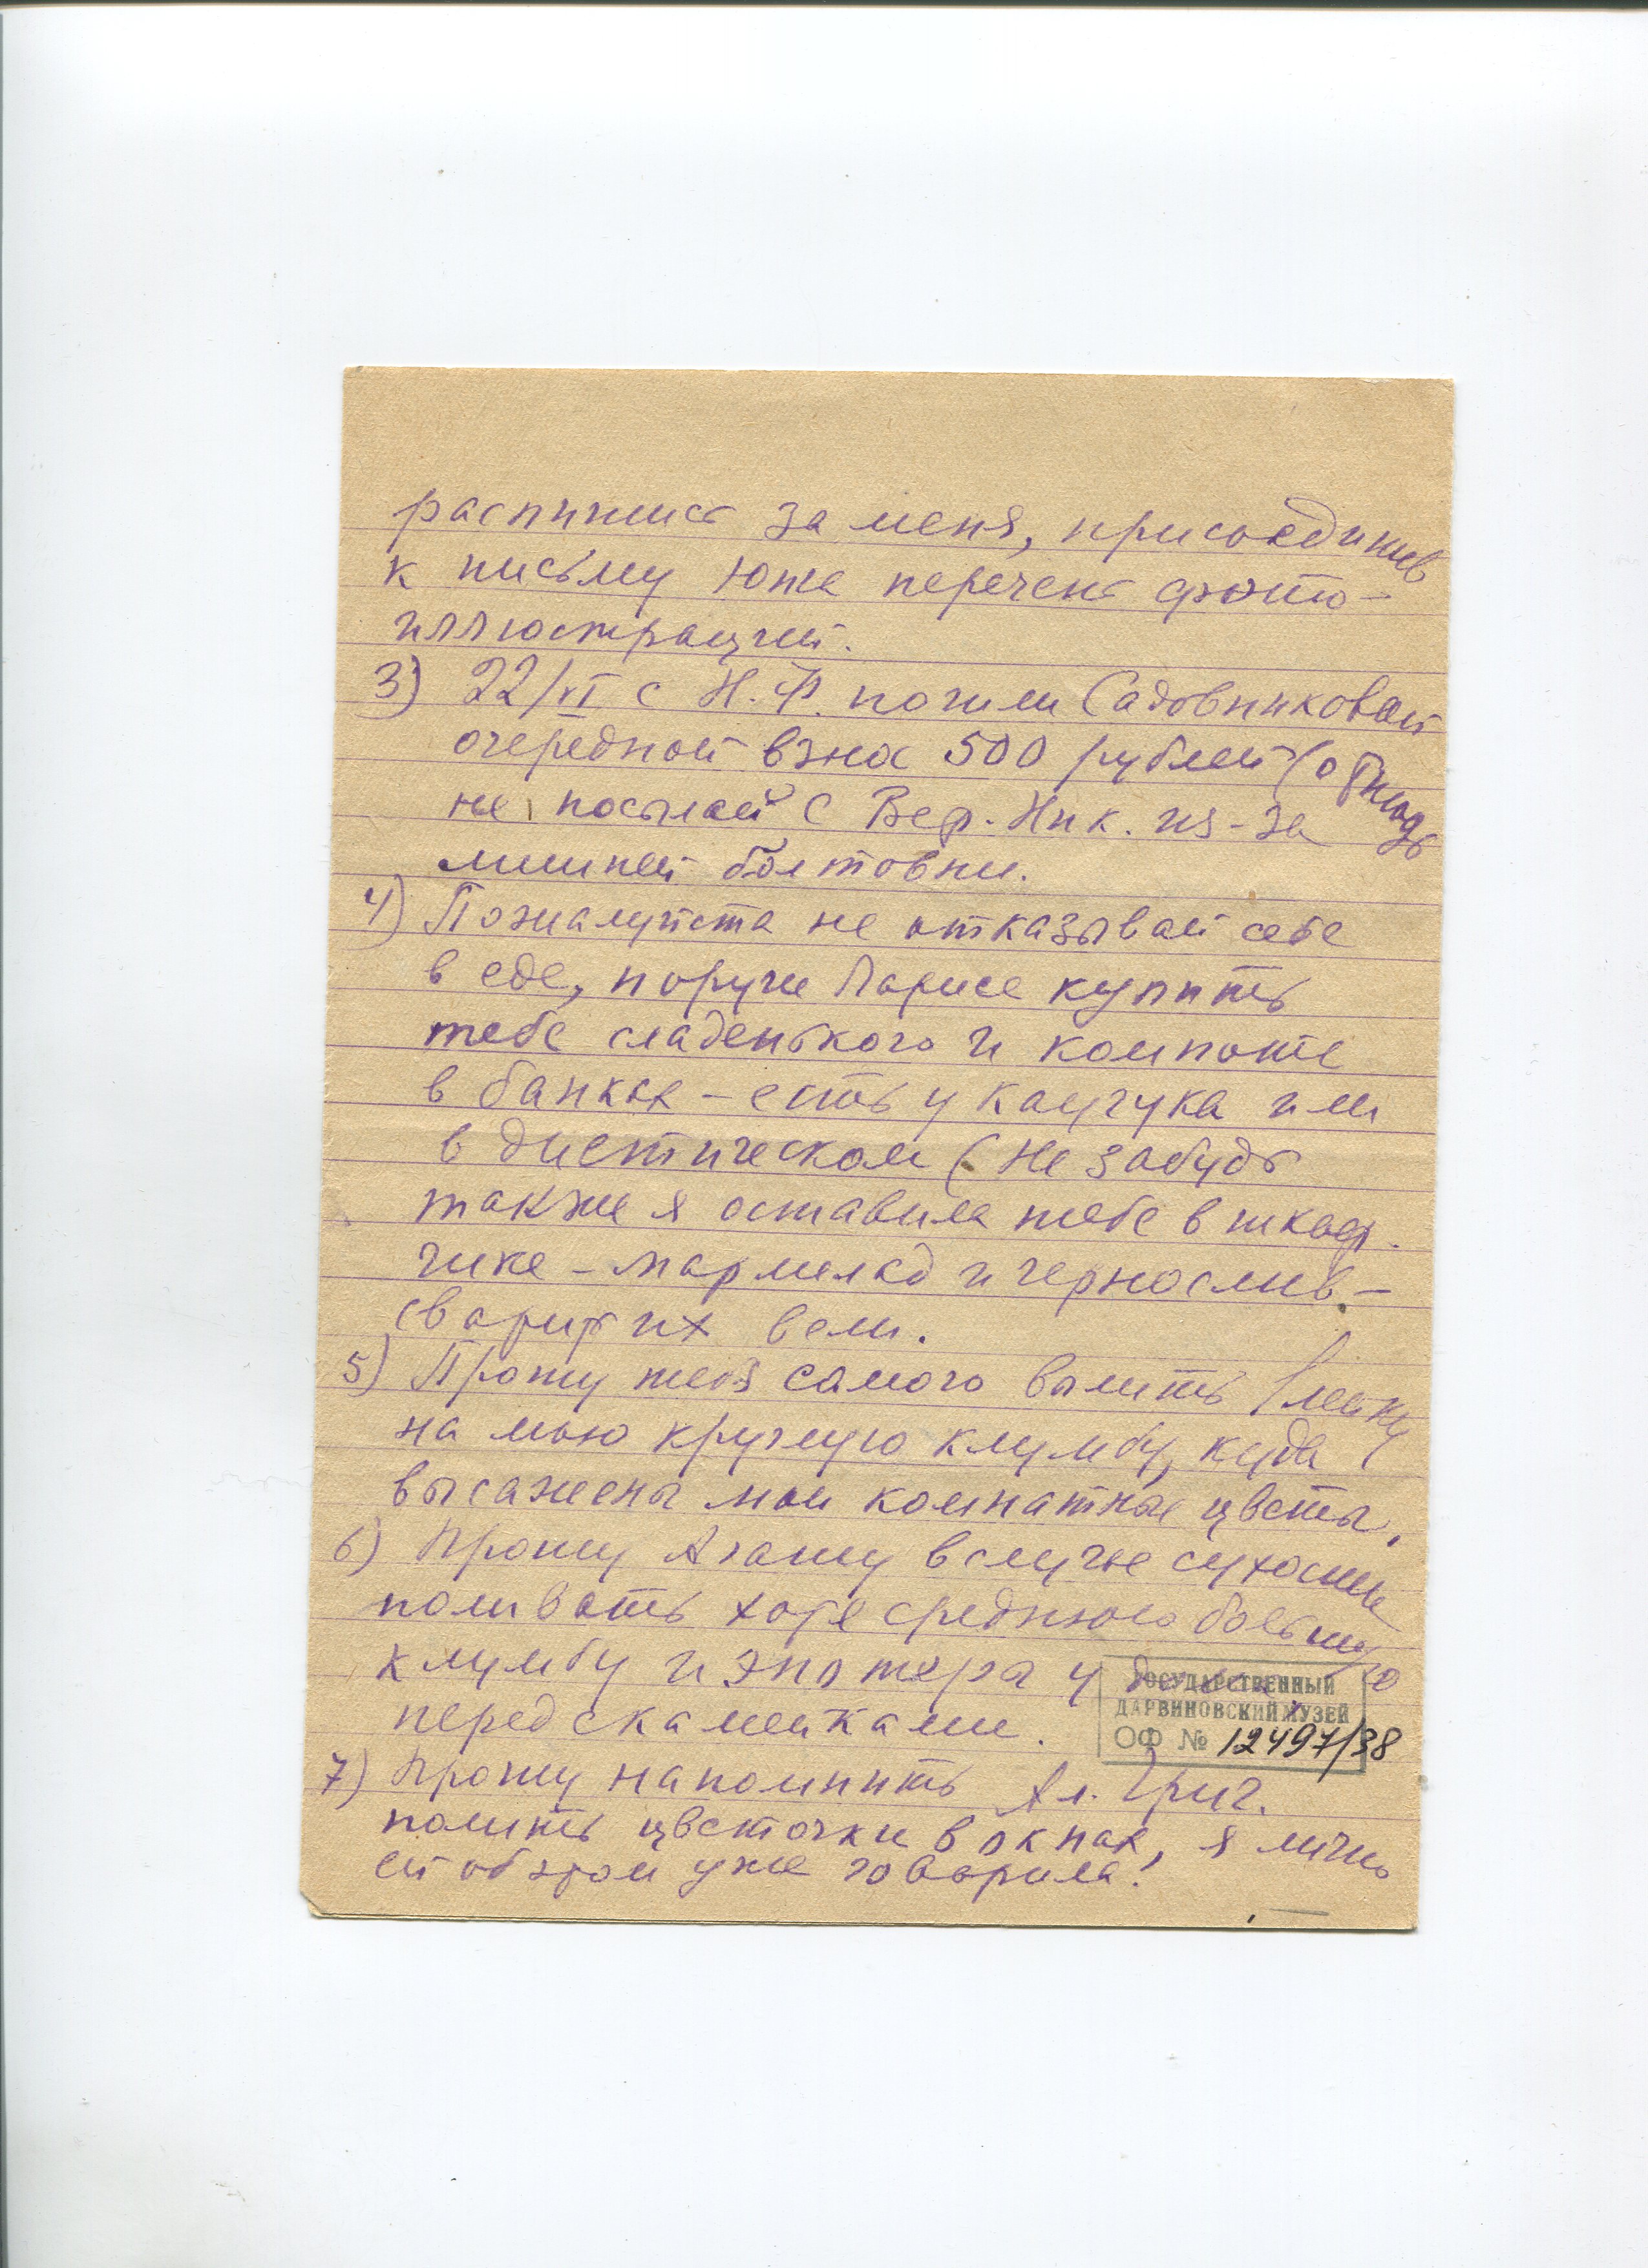 распишись за меня, присоединив
к письму Юже перечень фото-
иллюстраций.
3) 22/VI с Н.Ф. пошли Садовниковой
очередной взнос 500 рублей (отнюдь
не посылай с Вер. Ник. из-за
лишней болтовни.
4) Пожалуйста не отказывай себе
в еде, поручи Ларисе купить
тебе сладенького и компоте
в банках – есть у Каучука или
в диетическом (Не забудь
также я оставила тебе в шкаф-
чике – мармелад и чернослив –
сварить их вели.
5) Прошу тебя самого вылить лейку
на мою круглую клумбу, куда
высажены мои комнатные цветы.
6) Прошу Агашу в случае сухости
поливать хотя среднюю большую
клумбу и у
перед скамейками.
7) Прошу напомнить Ал. Григ.
полить цветочки в окнах, я лично
ей об этом уже говорила!
ГОСУДАРСТВЕННЫЙ
ДАРВИНОВСКИЙ МУЗЕЙ
ОФ № 12497/38